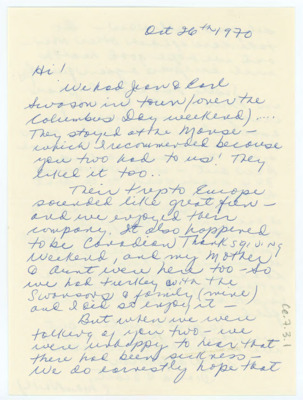 Oct 26th 1970
Hi!
We had Jean & Carl
Swason in town (over the
Columbus Day weekend) ....
They stayed at the Manse -
which I recommended because
you two had to us! They
liked it too..
Their trip to Europe
sounded like great fun -
and we enjoyed their
company. It also happened
to be Canadian Thanksgiving
weekend, and my Mother
& Aunt were here too - so
we had turkey with the
Swansons & family (mine)
and I did so enjoy it -
But when we were
talking of you two - we
were unhappy to hear that
there had been sickness -
We do earnestly hope that